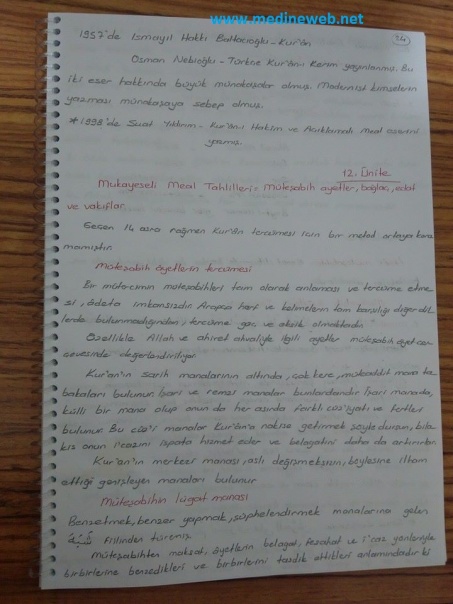 www.medineweb.net
24
1957'de Ismayıl Hakkı Baltacıoğlu - Kur'ân
Osman Nebioğlu - Türkçe Kur'ânı Kerim yayınlanmış. Bu
iki eser hakkında büyük münakaşalar olmuş. Modernist kimselerin
yazması münakaşaya sebep olmuş.
* 1998'de Suat Yıldırım - Kur'ânı Hakîm ve Açıklamalı Meal eserini
yazmış.
12. Ünite
Mukayeseli Meal Tahlilleri: müteşabih ayetler, bağlaç, edat
ve vakıflar
Geçen 14 asra rağmen Kur'ân tercümesi için bir metod ortaya kona
mamıştır.
Müteşabih âyetlerin tercümesi
Bir mütercimin müteşabihleri tam olarak anlaması ve tercüme etme
si, âdeta imkansızdır. Arapça harf ve kelimelerin tam karşılığı diğer dil
lerde bulunmadığından, tercüme güç ve eksik olmaktadır.
Özellikle Allah ve ahiret ahvaliyle ilgili ayetler müteşabih ayet çer
çevesinde değerlendiriliyor.
Kur'an'ın sarih manalarının altında, çok kere, müteaddit mana ta
bakaları bulunur. İşari ve remzi manalar bunlardandır. İşari manada,
külli bir mana olup onun da her asırda farklı cüz'iyatı ve fertleri
bulunur. Bu cüz'i manalar Kur'an'a nakise getirmek şöyle dursun, bila
kis onun i'cazını ispata hizmet eder ve belagatini daha da artırırlar.
Kur'an'ın merkezi manası, aslı değişmeksizin, böylesine iltham
ettiği genişleyen manaları bulunur
Müteşabihin lügat manası
Benzetmek, benzer yapmak, şüphelendirmek manalarına gelen
fiilinden türemiş
Müteşabihten maksat, âyetlerin belagat, fesahat ve i'caz yönleriyle
birbirlerine benzedikleri ve birbirlerini tasdik ettikleri anlamındadır ki